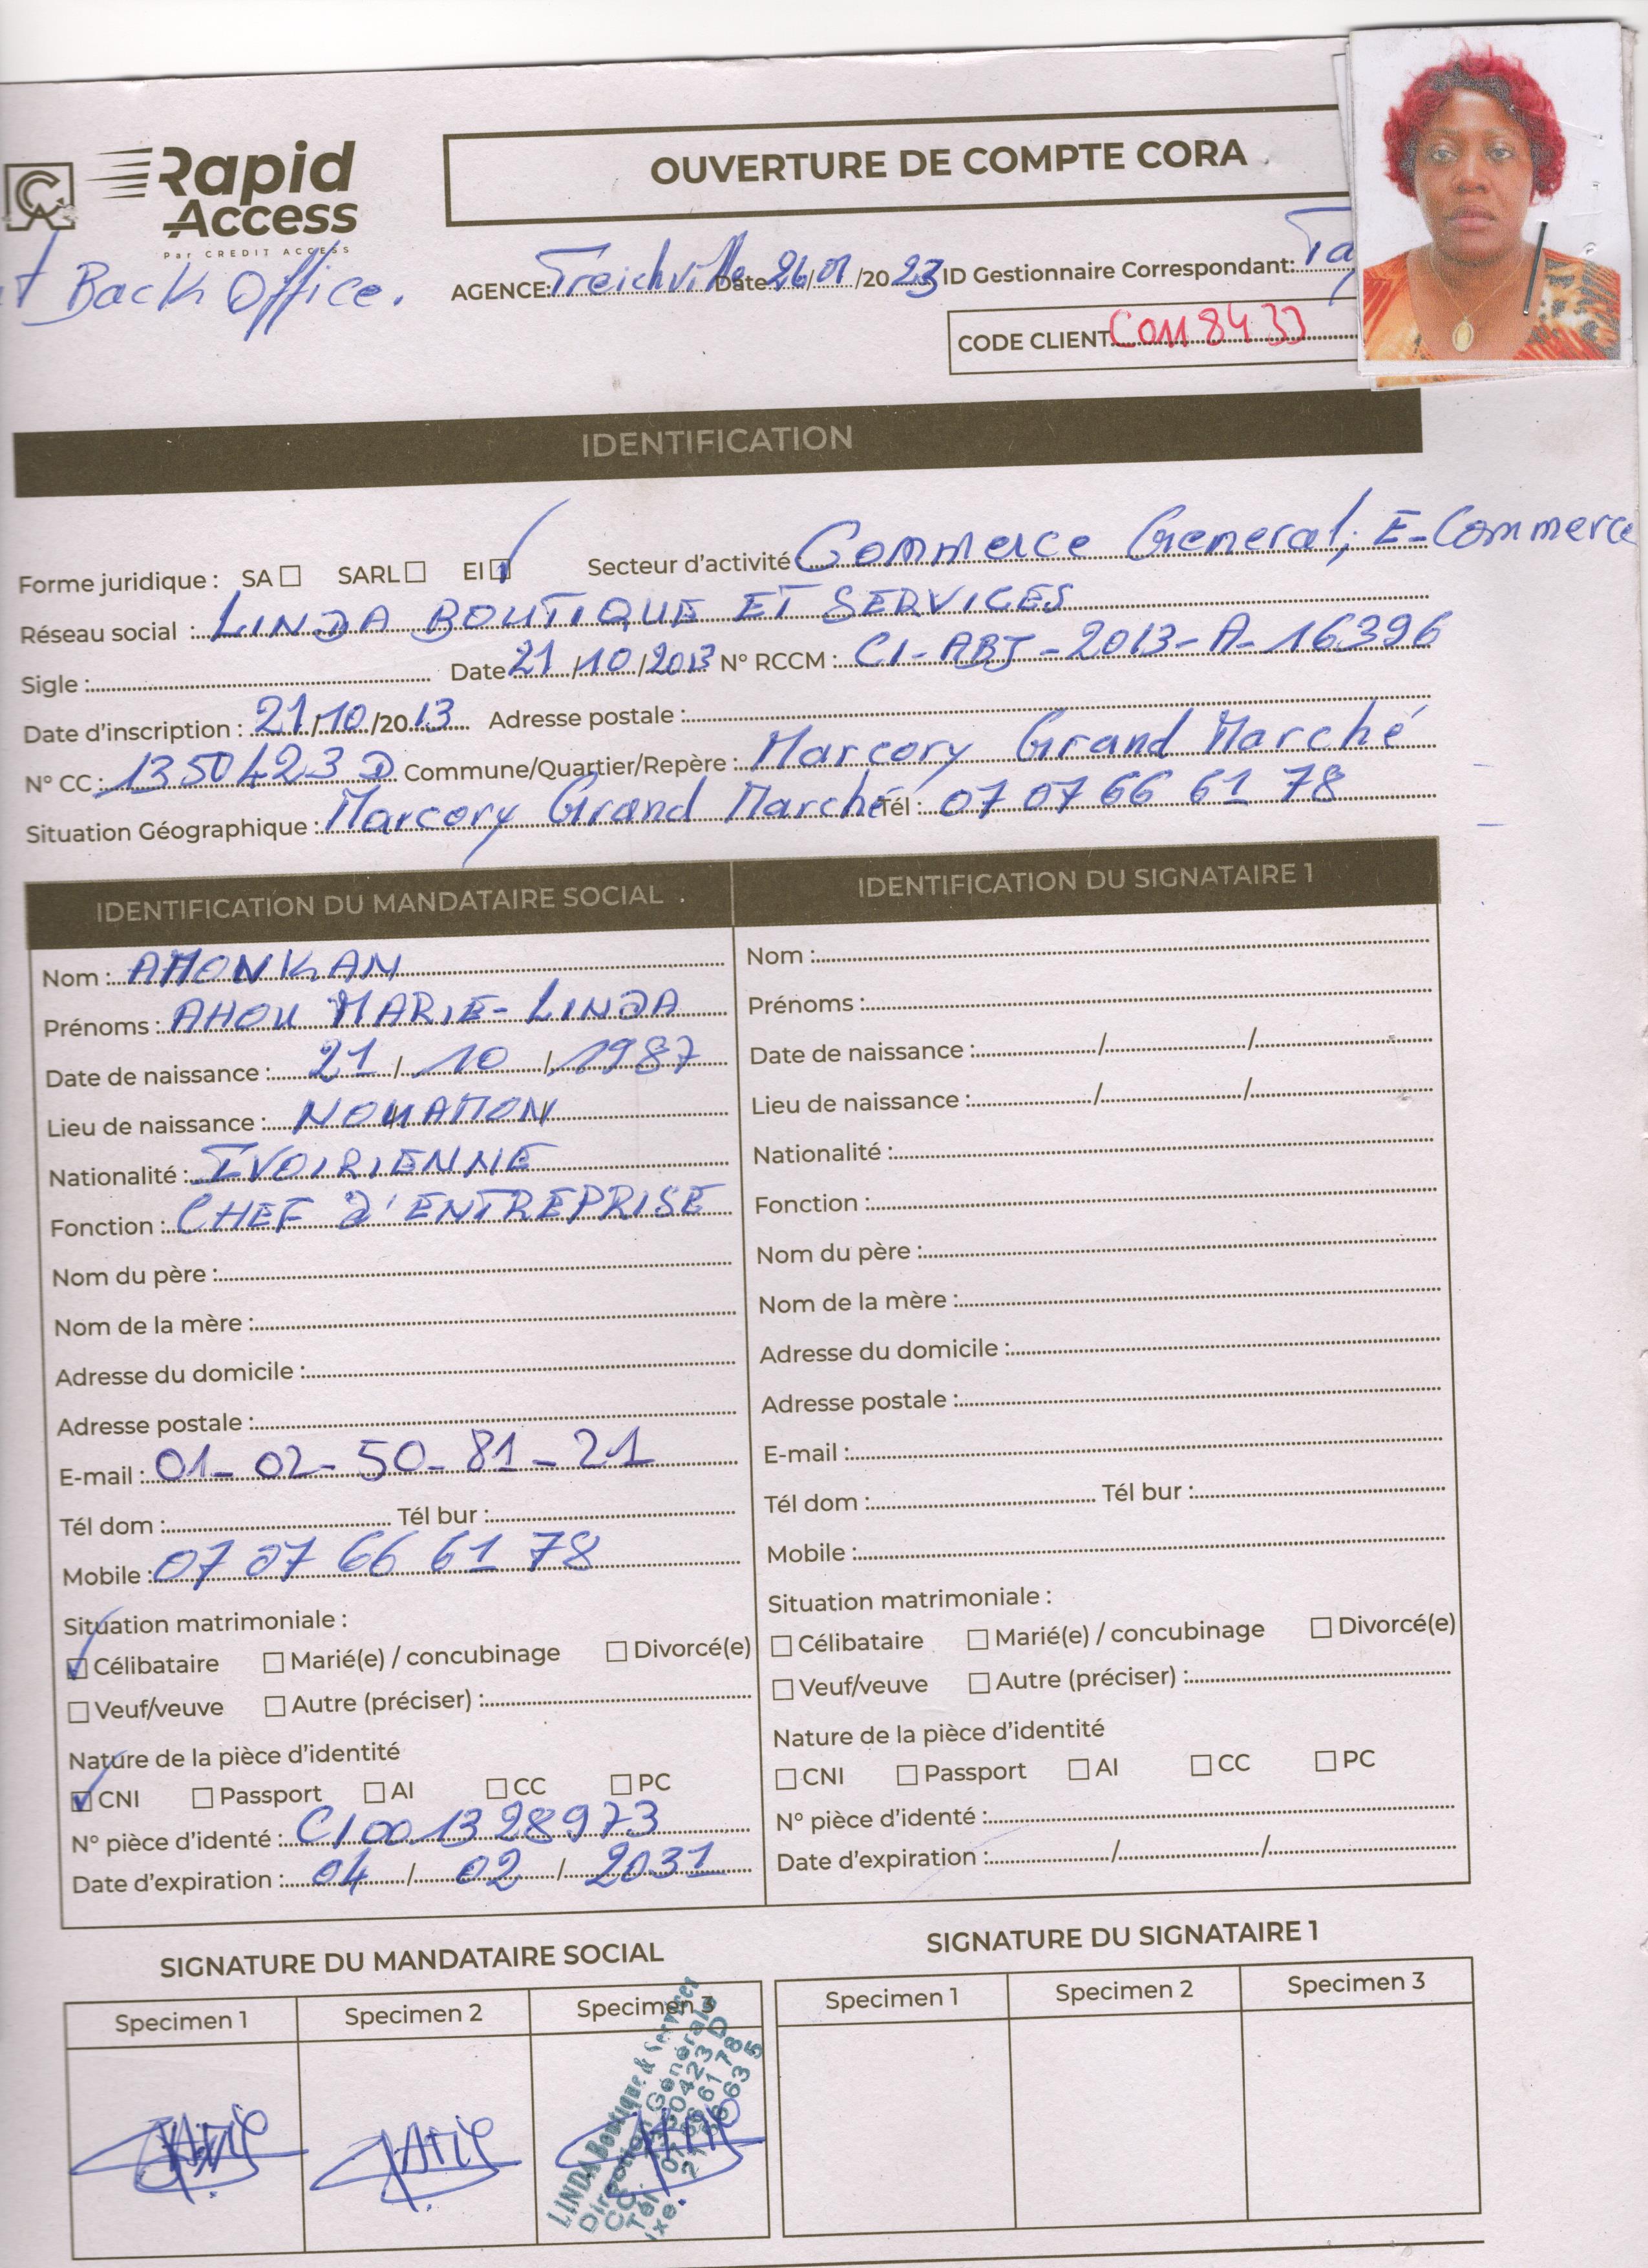 CA
Rapid
Access
Par CREDIT ACCESS
OUVERTURE DE COMPTE CORA
Back Office.
AGENCE: Treichville Date 26/01/2023 ID Gestionnaire Correspondant:
CODE CLIENT C0118433
IDENTIFICATION
Forme juridique : SA ☐ SARL ☐ EI ☑ Secteur d'activité Commerce General, E-Commerce
Réseau social : LINDA BOUTIQUE ET SERVICES
Sigle : Date 21/10/2013 N° RCCM : CI-ABJ-2013-A-16396
Date d'inscription : 21/10/2013 Adresse postale :
N° CC : 1350423 D Commune/Quartier/Repère : Marcory Grand Marché
Situation Géographique : Marcory Grand Marché Tél : 07 07 66 61 78
IDENTIFICATION DU MANDATAIRE SOCIAL
Nom : AMONKAN
Prénoms : AHOU MARIE-LINDA
Date de naissance : 21/10/1987
Lieu de naissance : NOUAMON
Nationalité : IVOIRIENNE
Fonction : CHEF D'ENTREPRISE
Nom du père :
Nom de la mère :
Adresse du domicile :
Adresse postale :
E-mail : 01-02-50-81-21
Tél dom : Tél bur :
Mobile : 07 07 66 61 78
Situation matrimoniale :
☑ Célibataire ☐ Marié(e) / concubinage ☐ Divorcé(e)
☐ Veuf/veuve ☐ Autre (préciser) :
Nature de la pièce d'identité
☑ CNI ☐ Passport ☐ AI ☐ CC ☐ PC
N° pièce d'identé : CI001328973
Date d'expiration : 04/02/2031
IDENTIFICATION DU SIGNATAIRE 1
Nom :
Prénoms :
Date de naissance : / /
Lieu de naissance : / /
Nationalité :
Fonction :
Nom du père :
Nom de la mère :
Adresse du domicile :
Adresse postale :
E-mail :
Tél dom : Tél bur :
Mobile :
Situation matrimoniale :
☐ Célibataire ☐ Marié(e) / concubinage ☐ Divorcé(e)
☐ Veuf/veuve ☐ Autre (préciser) :
Nature de la pièce d'identité
☐ CNI ☐ Passport ☐ AI ☐ CC ☐ PC
N° pièce d'identé :
Date d'expiration : / /
SIGNATURE DU MANDATAIRE SOCIAL
Specimen 1 Specimen 2 Specimen 3
LINDA Boutique & Services
Direction Générale
SIGNATURE DU SIGNATAIRE 1
Specimen 1 Specimen 2 Specimen 3